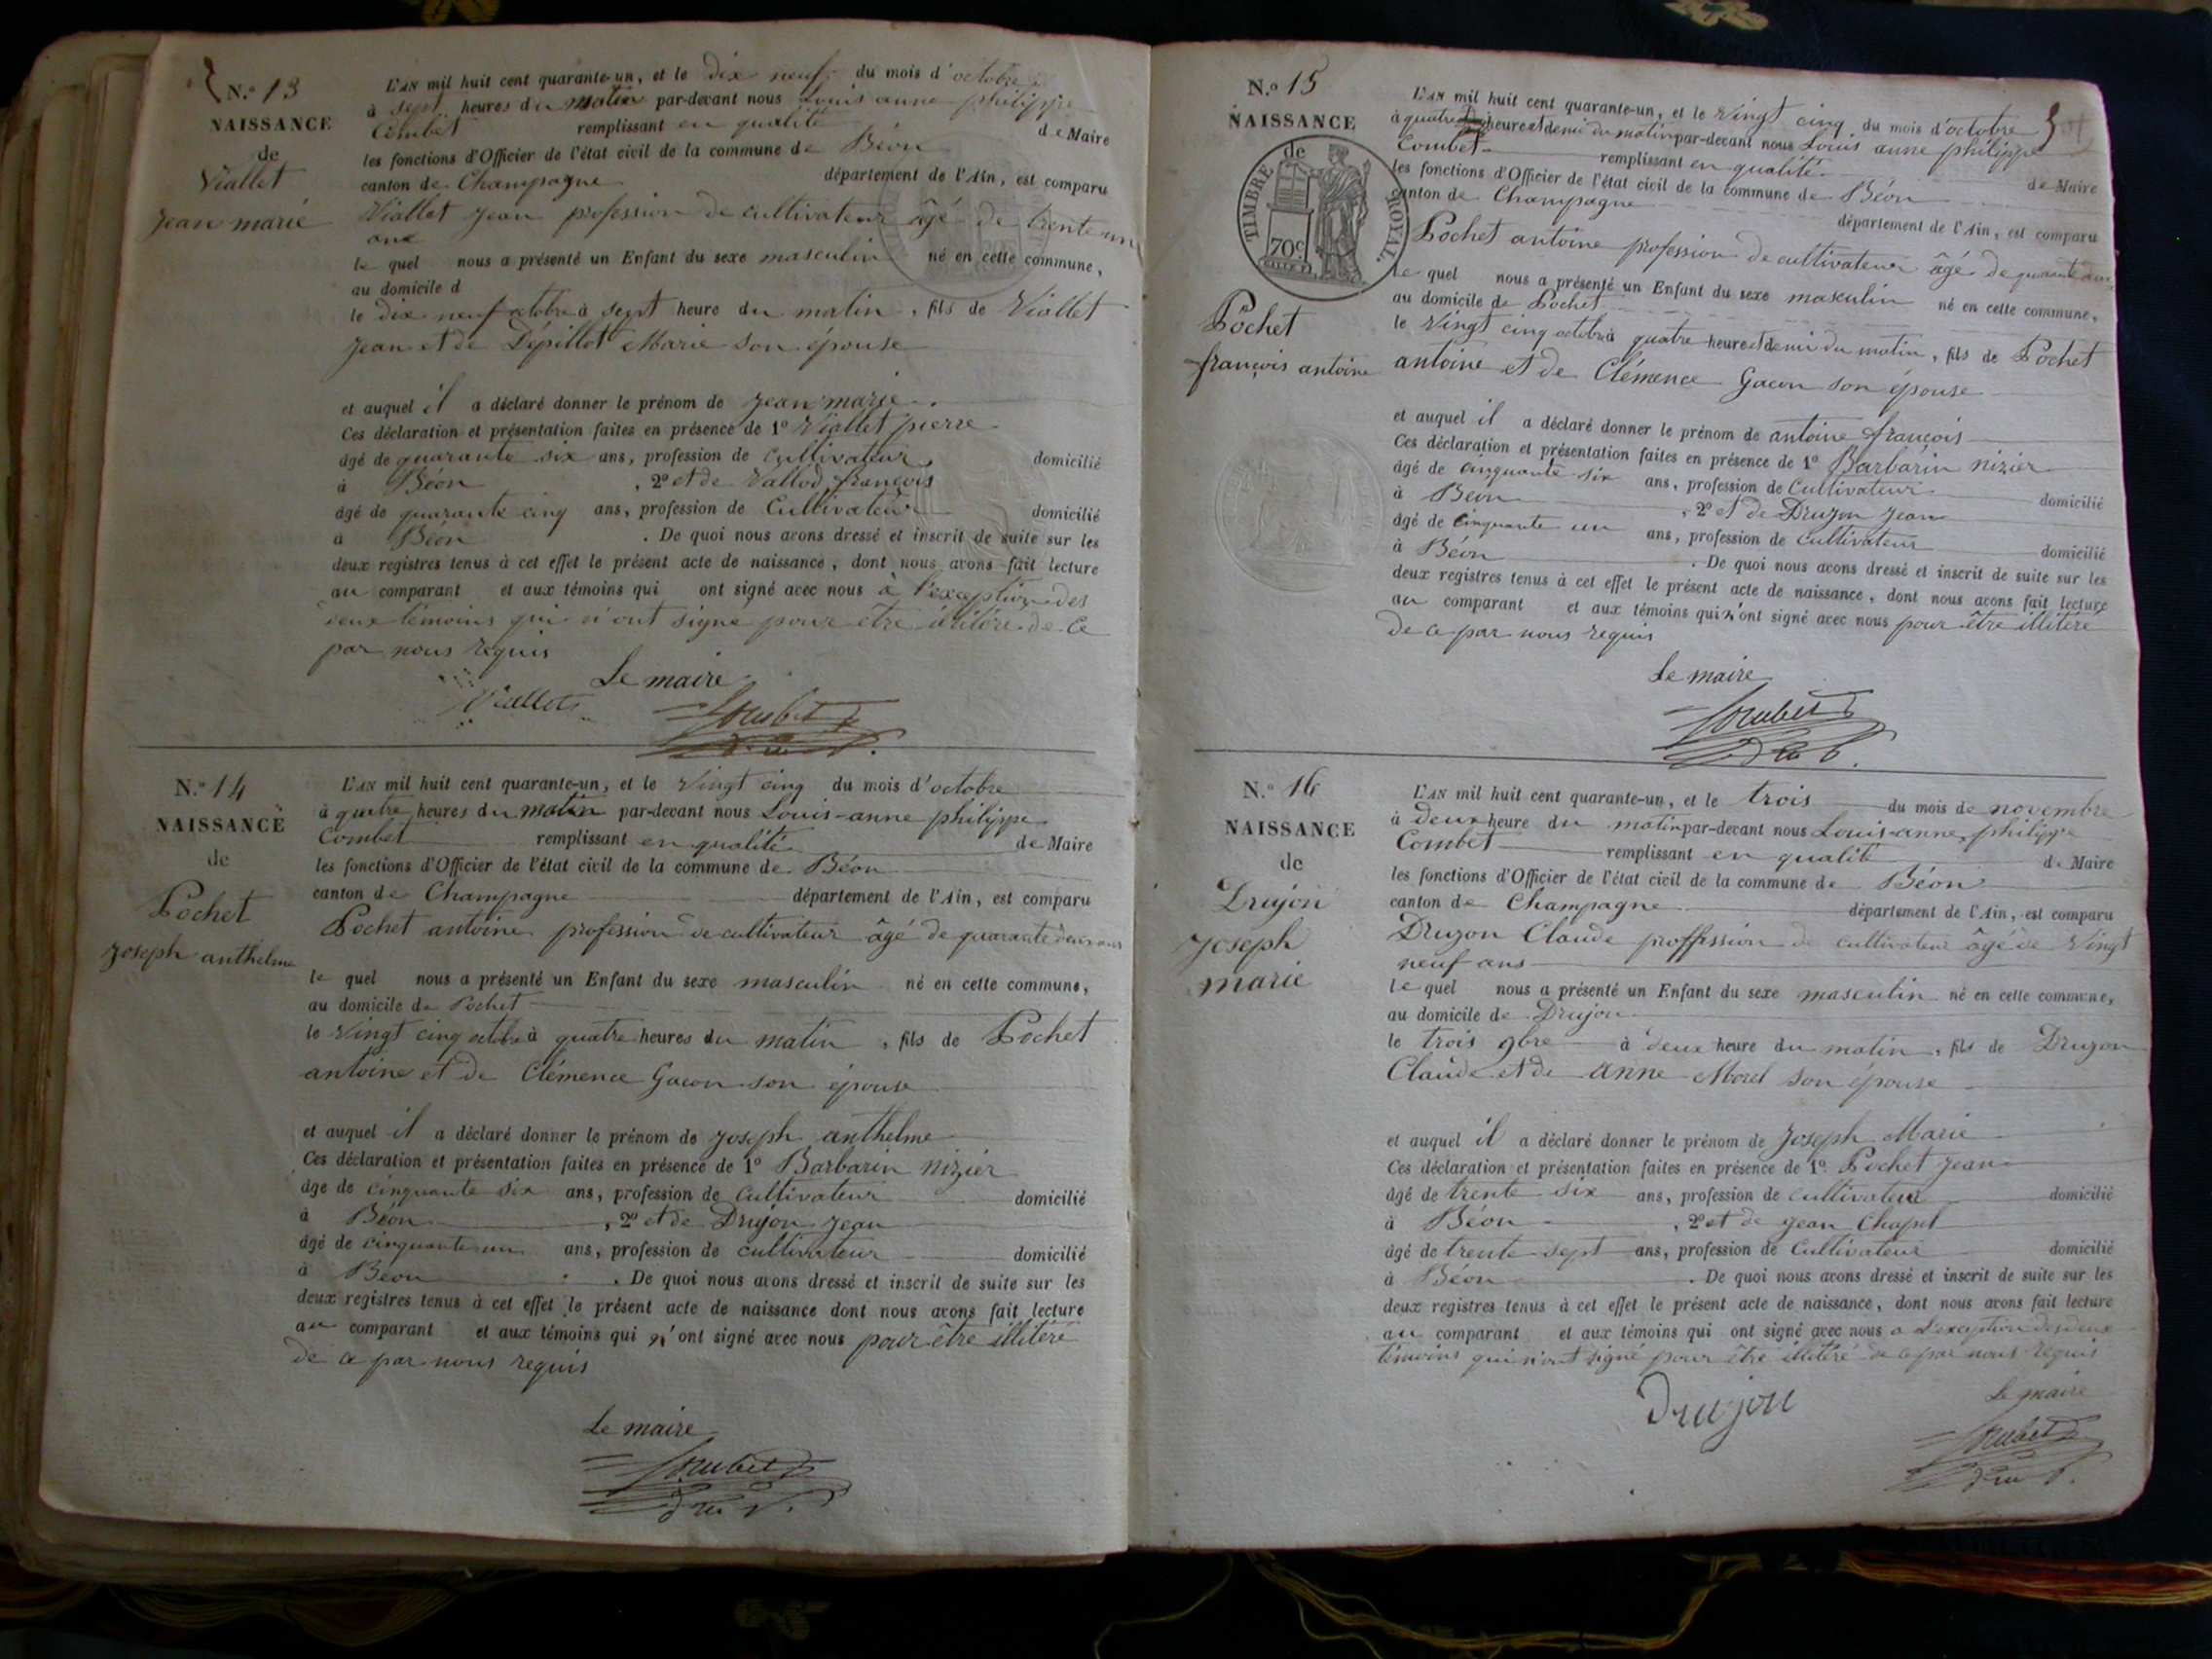 N.º 13
NAISSANCE
de
Viallet
Jean marie
L'AN mil huit cent quarante-un, et le dix neuf du mois d'octobre
à sept heures du matin par-devant nous Louis anne philippe
Combet remplissant en qualité de Maire
les fonctions d'Officier de l'état civil de la commune de Béon
canton de Champagne département de l'Ain, est comparu
Viallet Jean profession de cultivateur âgé de trente un
ans
le quel nous a présenté un Enfant du sexe masculin né en cette commune,
au domicile d
le dix neuf octobre à sept heure du matin, fils de Viallet
Jean et de Dépillot Marie son épouse
et auquel il a déclaré donner le prénom de Jean marie
Ces déclaration et présentation faites en présence de 1º Viallet pierre
âgé de quarante six ans, profession de Cultivateur domicilié
à Béon, 2º et de Vallod françois
âgé de quarante cinq ans, profession de Cultivateur domicilié
à Béon. De quoi nous avons dressé et inscrit de suite sur les
deux registres tenus à cet effet le présent acte de naissance, dont nous avons fait lecture
au comparant et aux témoins qui ont signé avec nous à l'exception des
deux témoins qui n'ont signé pour être illitéré de ce
par nous requis
Le maire
Viallet
Combet
N.º 14
NAISSANCE
de
Pochet
Joseph anthelme
L'AN mil huit cent quarante-un, et le Vingt cinq du mois d'octobre
à quatre heures du matin par-devant nous Louis-anne philippe
Combet remplissant en qualité de Maire
les fonctions d'Officier de l'état civil de la commune de Béon
canton de Champagne département de l'Ain, est comparu
Pochet antoine profession de cultivateur âgé de quarante deux ans
le quel nous a présenté un Enfant du sexe masculin né en cette commune,
au domicile de Pochet
le Vingt cinq octobre à quatre heures du matin, fils de Pochet
antoine et de Clémence Gacon son épouse
et auquel il a déclaré donner le prénom de Joseph anthelme
Ces déclaration et présentation faites en présence de 1º Barbarin nizier
âgé de cinquante six ans, profession de Cultivateur domicilié
à Béon, 2º et de Drujon Jean
âgé de cinquante un ans, profession de cultivateur domicilié
à Béon. De quoi nous avons dressé et inscrit de suite sur les
deux registres tenus à cet effet le présent acte de naissance dont nous avons fait lecture
au comparant et aux témoins qui n'ont signé avec nous pour être illitéré
de ce par nous requis
Le maire
Combet
N.º 15
NAISSANCE
de
TIMBRE ROYAL
70 c.
Pochet
françois antoine
L'AN mil huit cent quarante-un, et le Vingt cinq du mois d'octobre
à quatre heures et demi du matin par-devant nous Louis anne philippe
Combet remplissant en qualité de Maire
les fonctions d'Officier de l'état civil de la commune de Béon
canton de Champagne département de l'Ain, est comparu
Pochet antoine profession de cultivateur âgé de quarante deux
le quel nous a présenté un Enfant du sexe masculin né en cette commune,
au domicile de Pochet
le Vingt cinq octobre à quatre heures et demi du matin, fils de Pochet
antoine et de Clémence Gacon son épouse
et auquel il a déclaré donner le prénom de antoine françois
Ces déclaration et présentation faites en présence de 1º Barbarin nizier
âgé de cinquante six ans, profession de Cultivateur domicilié
à Béon, 2º et de Drujon Jean
âgé de cinquante un ans, profession de cultivateur domicilié
à Béon. De quoi nous avons dressé et inscrit de suite sur les
deux registres tenus à cet effet le présent acte de naissance, dont nous avons fait lecture
au comparant et aux témoins qui n'ont signé avec nous pour être illitéré
de ce par nous requis
Le maire
Combet
N.º 16
NAISSANCE
de
Drujon
Joseph
marie
L'AN mil huit cent quarante-un, et le trois du mois de novembre
à deux heure du matin par-devant nous Louis-anne philippe
Combet remplissant en qualité de Maire
les fonctions d'Officier de l'état civil de la commune de Béon
canton de Champagne département de l'Ain, est comparu
Drujon Claude proffession de cultivateur âgé de Vingt
neuf ans
le quel nous a présenté un Enfant du sexe masculin né en cette commune,
au domicile de Drujon
le trois 9bre à deux heure du matin, fils de Drujon
Claude et de anne Morel son épouse
et auquel il a déclaré donner le prénom de Joseph Marie
Ces déclaration et présentation faites en présence de 1º Pochet Jean
âgé de trente six ans, profession de cultivateur domicilié
à Béon, 2º et de Jean Chapel
âgé de trente sept ans, profession de Cultivateur domicilié
à Béon. De quoi nous avons dressé et inscrit de suite sur les
deux registres tenus à cet effet le présent acte de naissance, dont nous avons fait lecture
au comparant et aux témoins qui ont signé avec nous a l'exception des deux
témoins qui n'ont signé pour être illitéré de ce par nous requis
Drujon
Le maire
Combet